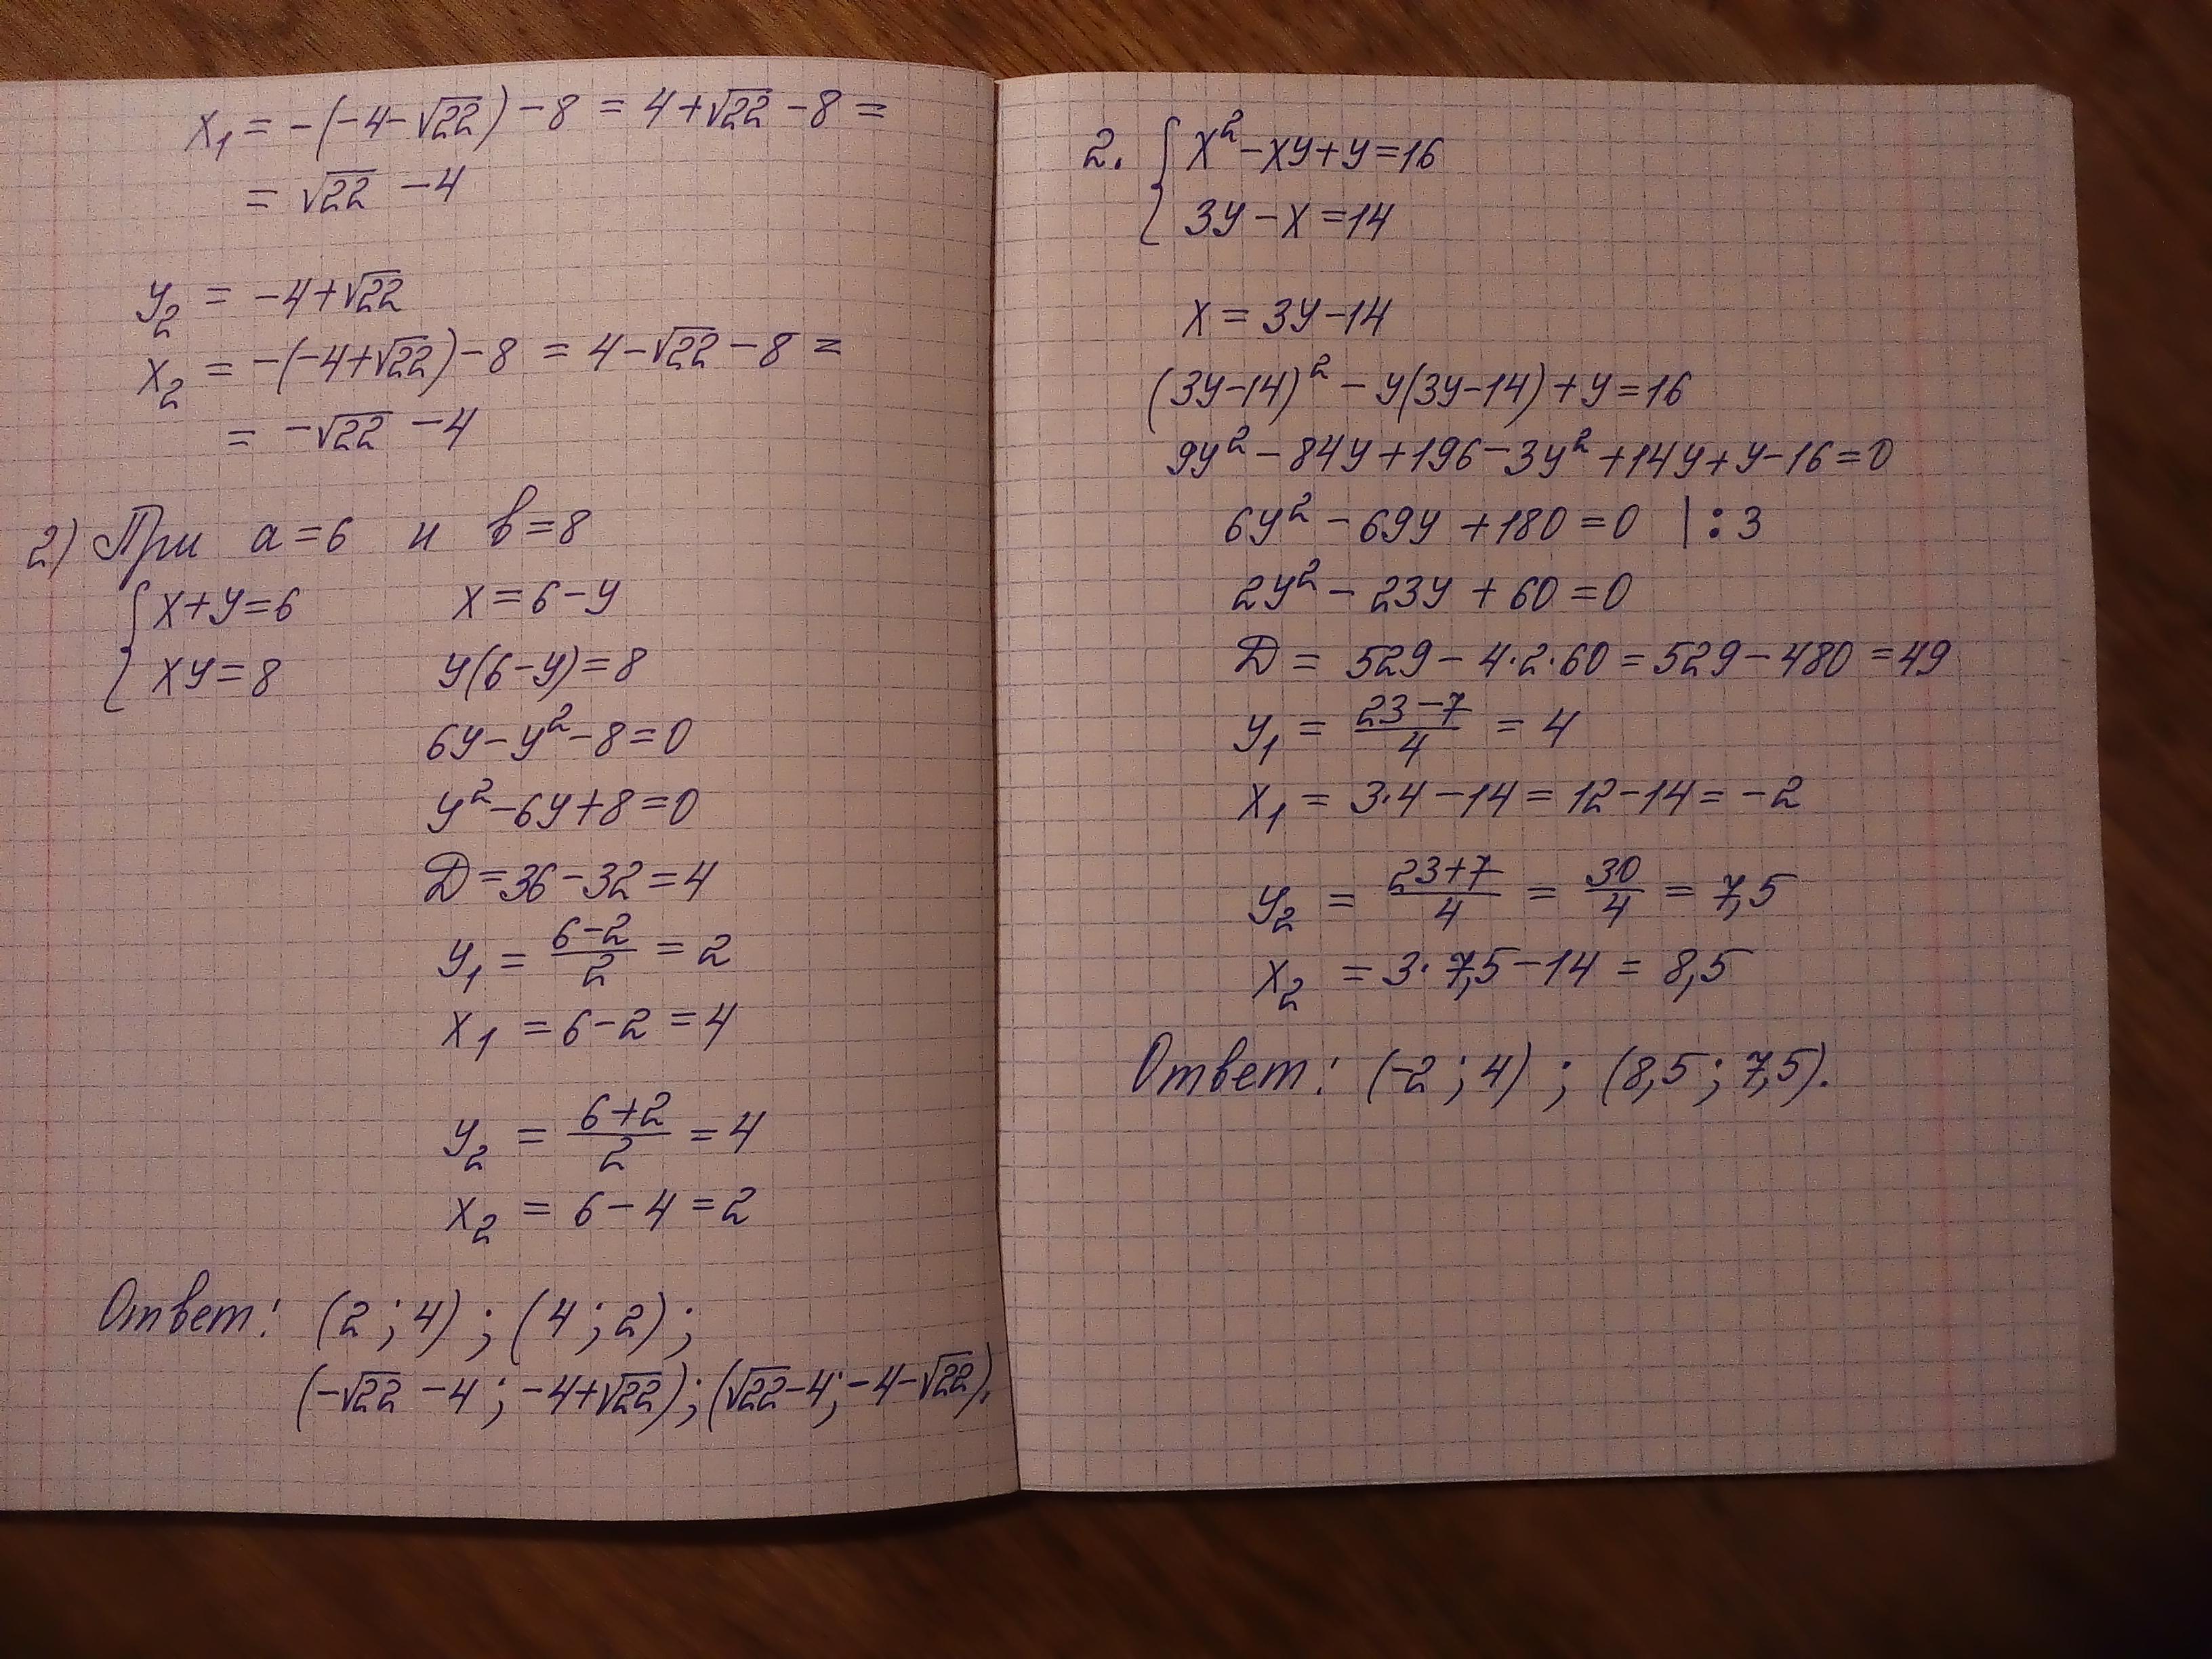 x₁ = -(-4-√22) -8 = 4+√22 -8 =
= √22 -4
y₂ = -4+√22
x₂ = -(-4+√22) -8 = 4-√22 -8 =
= -√22 -4
2) При a=6 и b=8
{ x+y=6 x=6-y
xy=8 y(6-y)=8
6y-y²-8=0
y²-6y+8=0
D=36-32=4
y₁ = (6-2)/2 = 2
x₁ = 6-2=4
y₂ = (6+2)/2 = 4
x₂ = 6-4=2
Ответ: (2;4); (4;2);
(-√22 -4; -4+√22); (√22-4; -4-√22).
2. { x²-xy+y=16
3y-x=14
x=3y-14
(3y-14)² - y(3y-14)+y=16
9y²-84y+196-3y²+14y+y-16=0
6y²-69y+180=0 |:3
2y²-23y+60=0
D = 529-4·2·60=529-480=49
y₁ = (23-7)/4 = 4
x₁ = 3·4-14=12-14=-2
y₂ = (23+7)/4 = 30/4 = 7,5
x₂ = 3·7,5-14 = 8,5
Ответ: (-2;4); (8,5;7,5).